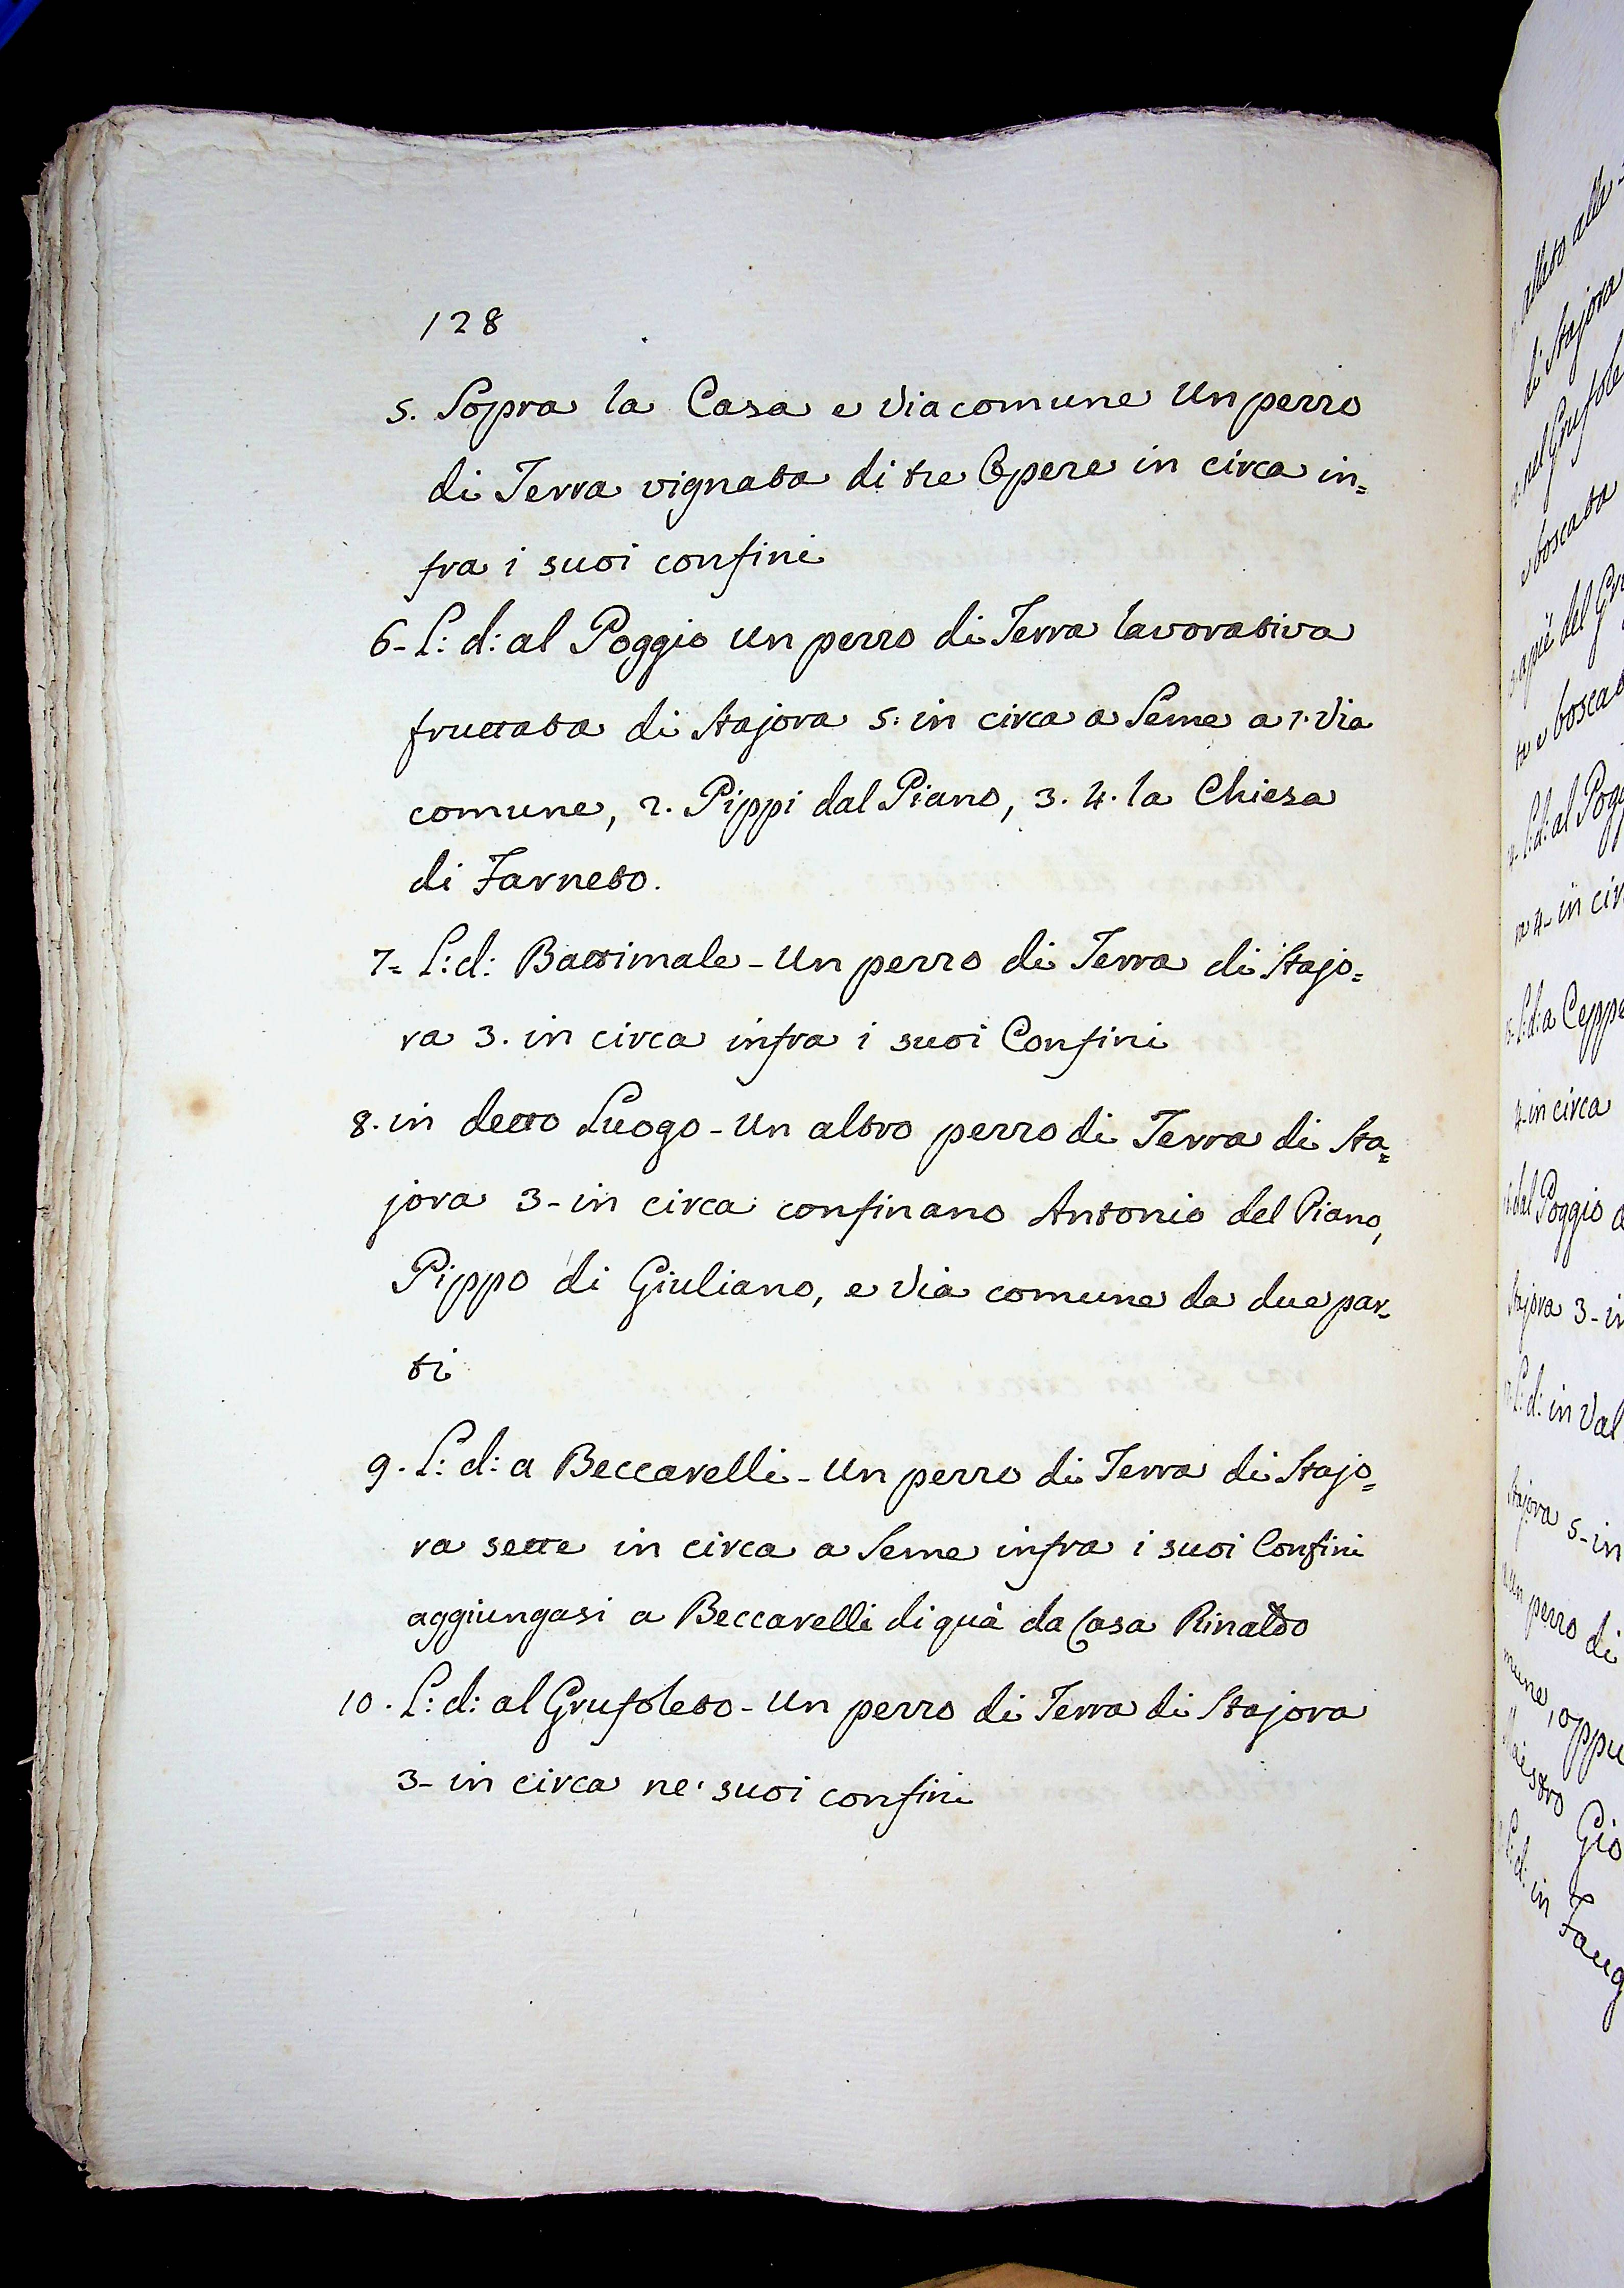 128
5. Sopra la Casa e Via comune Un pezzo
di Terra vignata di tre Opere in circa in=
fra i suoi confini
6- L: d: al Poggio un pezzo di Terra lavorativa
fruttata di Stajora 5. in circa a Seme a 1. Via
comune, 2. Pippi dal Piano, 3. 4. la Chiesa
di Farneto.
7= L: d: Battimale - Un pezzo di Terra di Stajo=
ra 3. in circa infra i suoi Confini
8. in detto Luogo - Un altro pezzo di Terra di Sta=
jora 3- in circa confinano Antonio del Piano,
Pippo di Giuliano, e Via comune da due par=
ti
9. L: d: a Beccarelli - Un pezzo di Terra di Stajo=
ra sette in circa a Seme infra i suoi Confini
aggiungasi a Beccarelli di quà da Casa Rinaldo
10. L: d: al Grufoleto - Un pezzo di Terra di Stajora
3- in circa ne' suoi confini
alleto alle
di Stajora
nel Grufole
e boscata
apiè del Gru
te e bosca
L: d: al Pogg
4- in cir
L: d: a Ceppe
4- in circa
dal Poggio a
Stajora 3- in
L: d: in Val
Stajora 5- in
un pezzo di
mune, oppu
Maestro Gio
L: d: in Fang